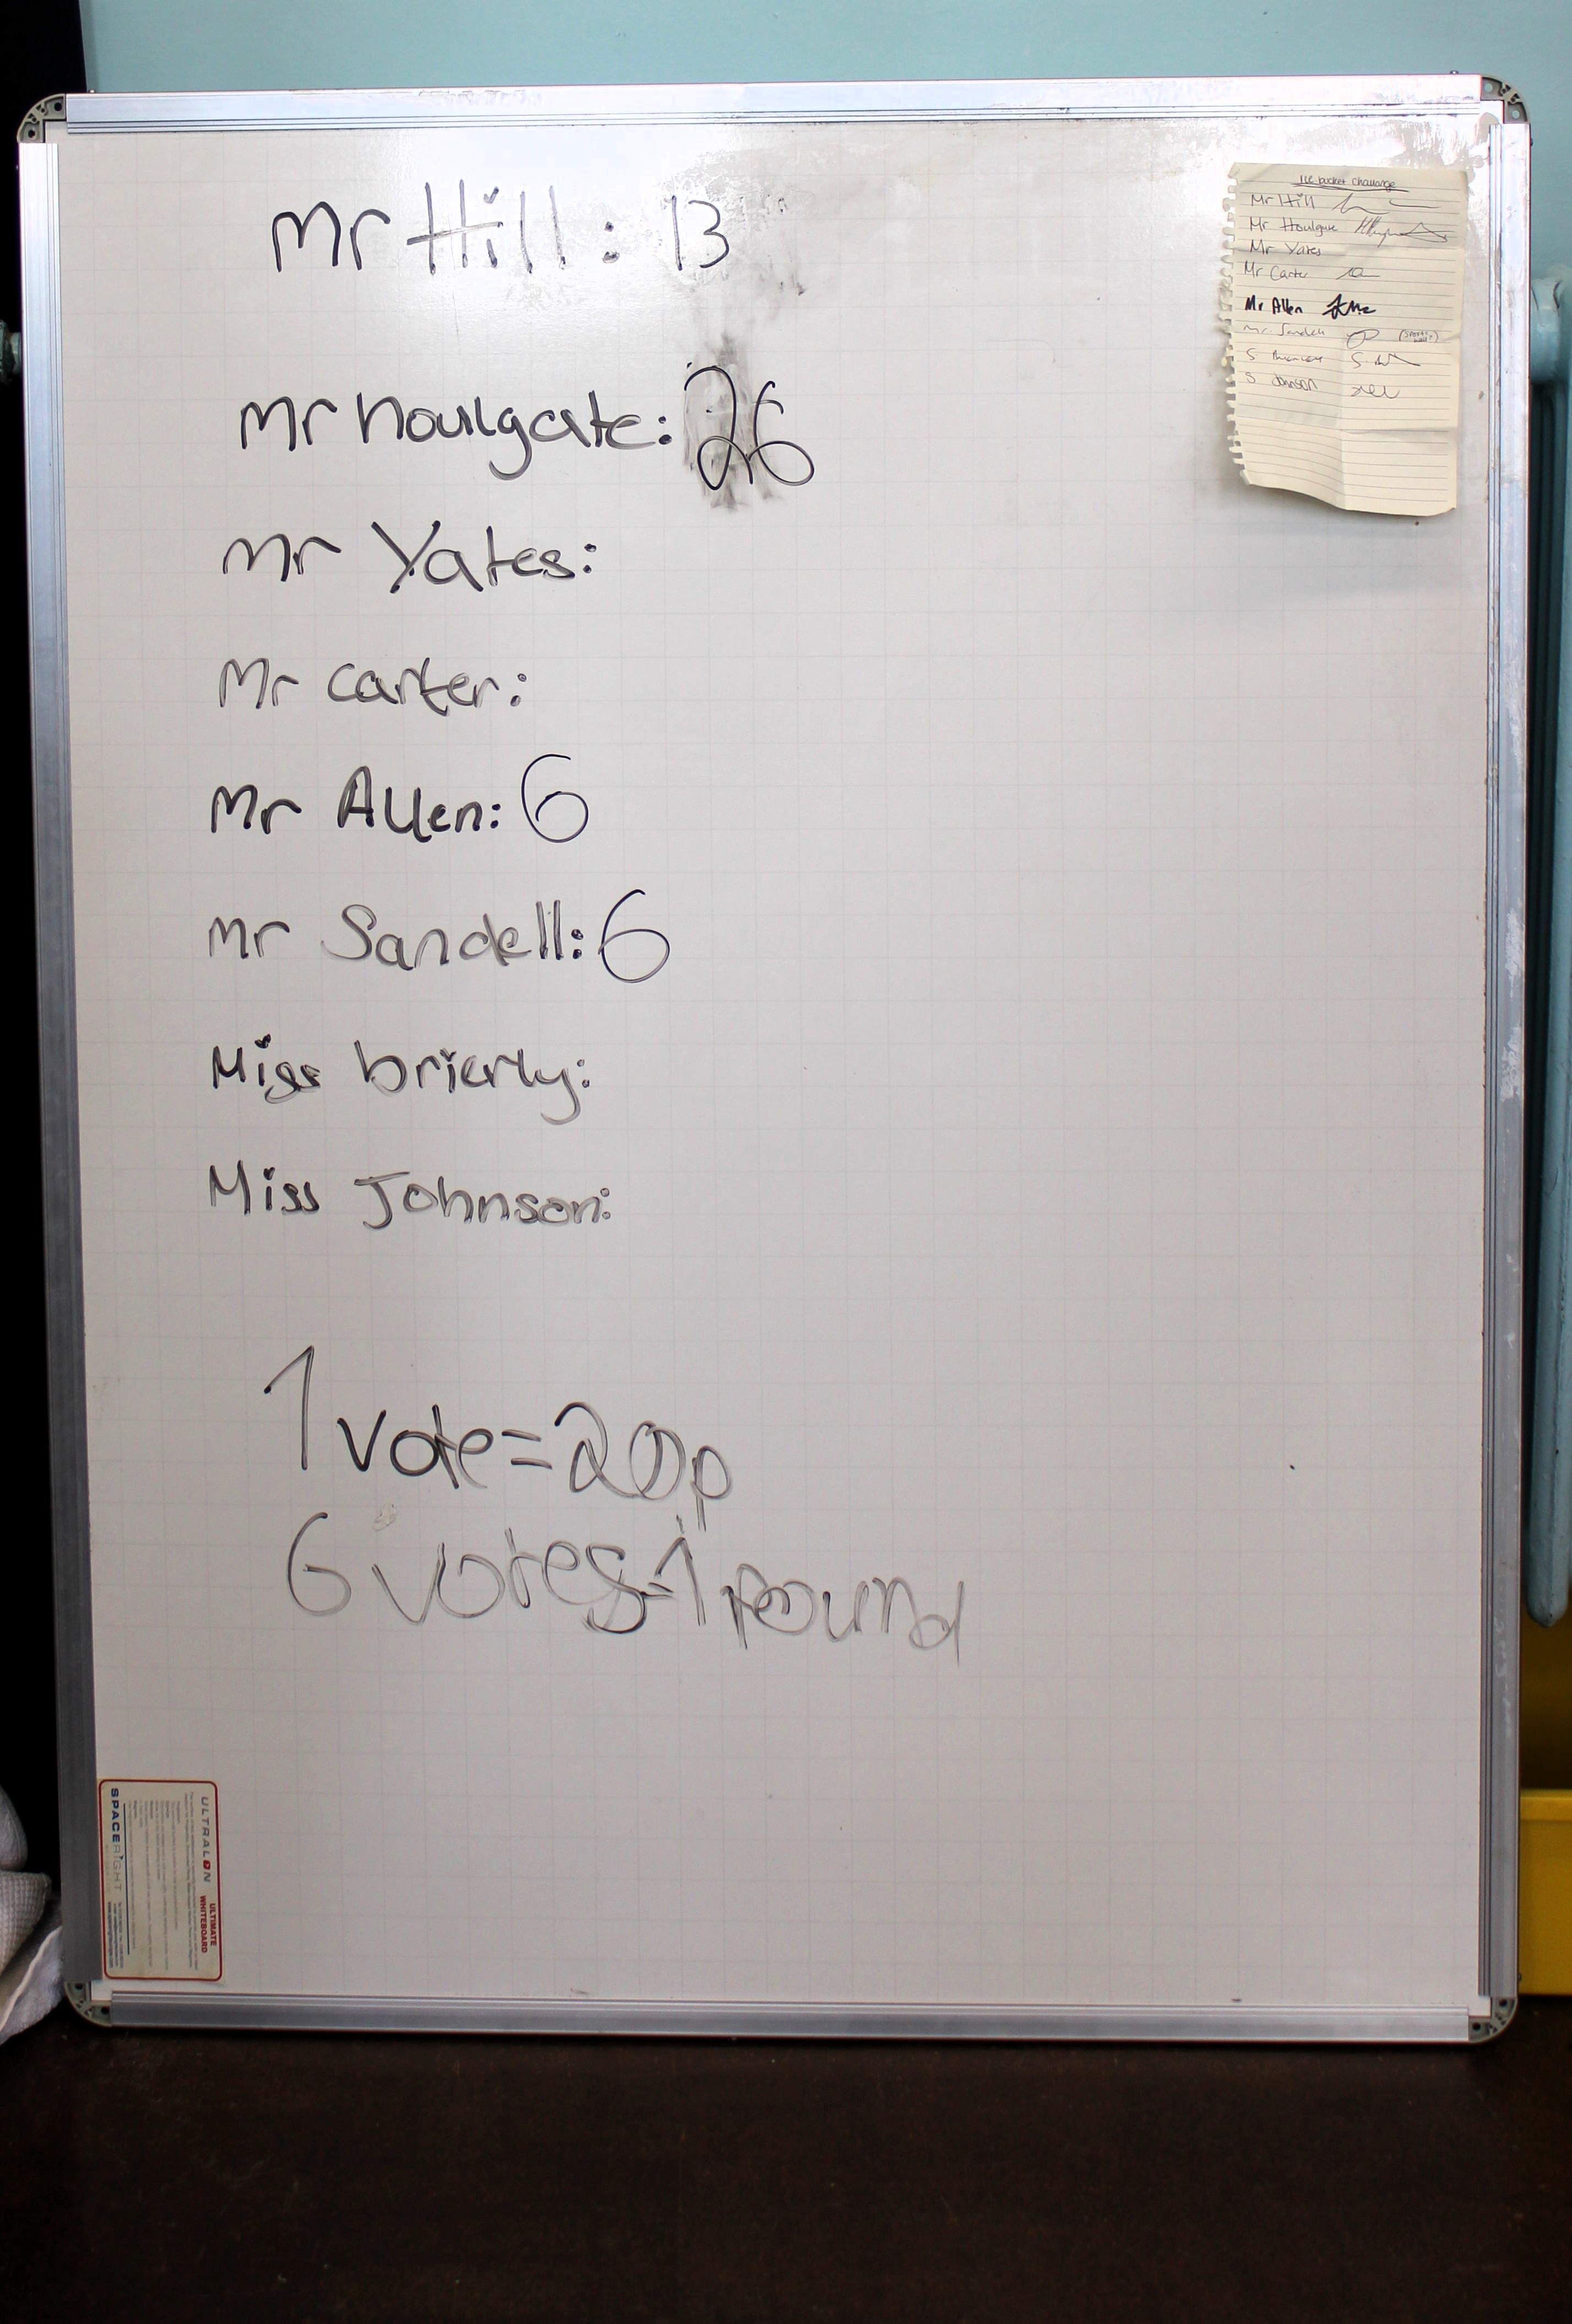 Mr Hill: 13
Mr houlgate: 26
Mr Yates:
Mr carter:
Mr Allen: 6
Mr Sandell: 6
Miss brierly:
Miss Johnson:
1 vote=20p
6 votes=1 pound
Mr Hill
Mr Houlgate
Mr Yates
Mr Carter
Mr Allen
Mr Sandell
S
S Johnson
ULTRALON
ULTIMATE WHITEBOARD
SPACERIGHT